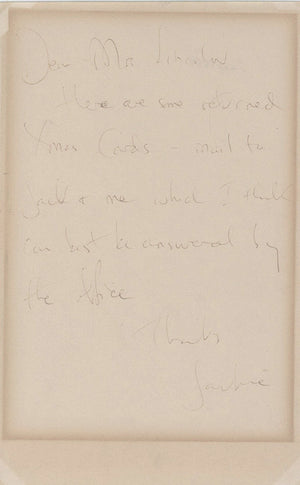 Dear Mrs Lincoln
Here are some returned
Xmas Cards - mail to
Jack & me which I think
can best be answered by
the office
Thanks
Jackie